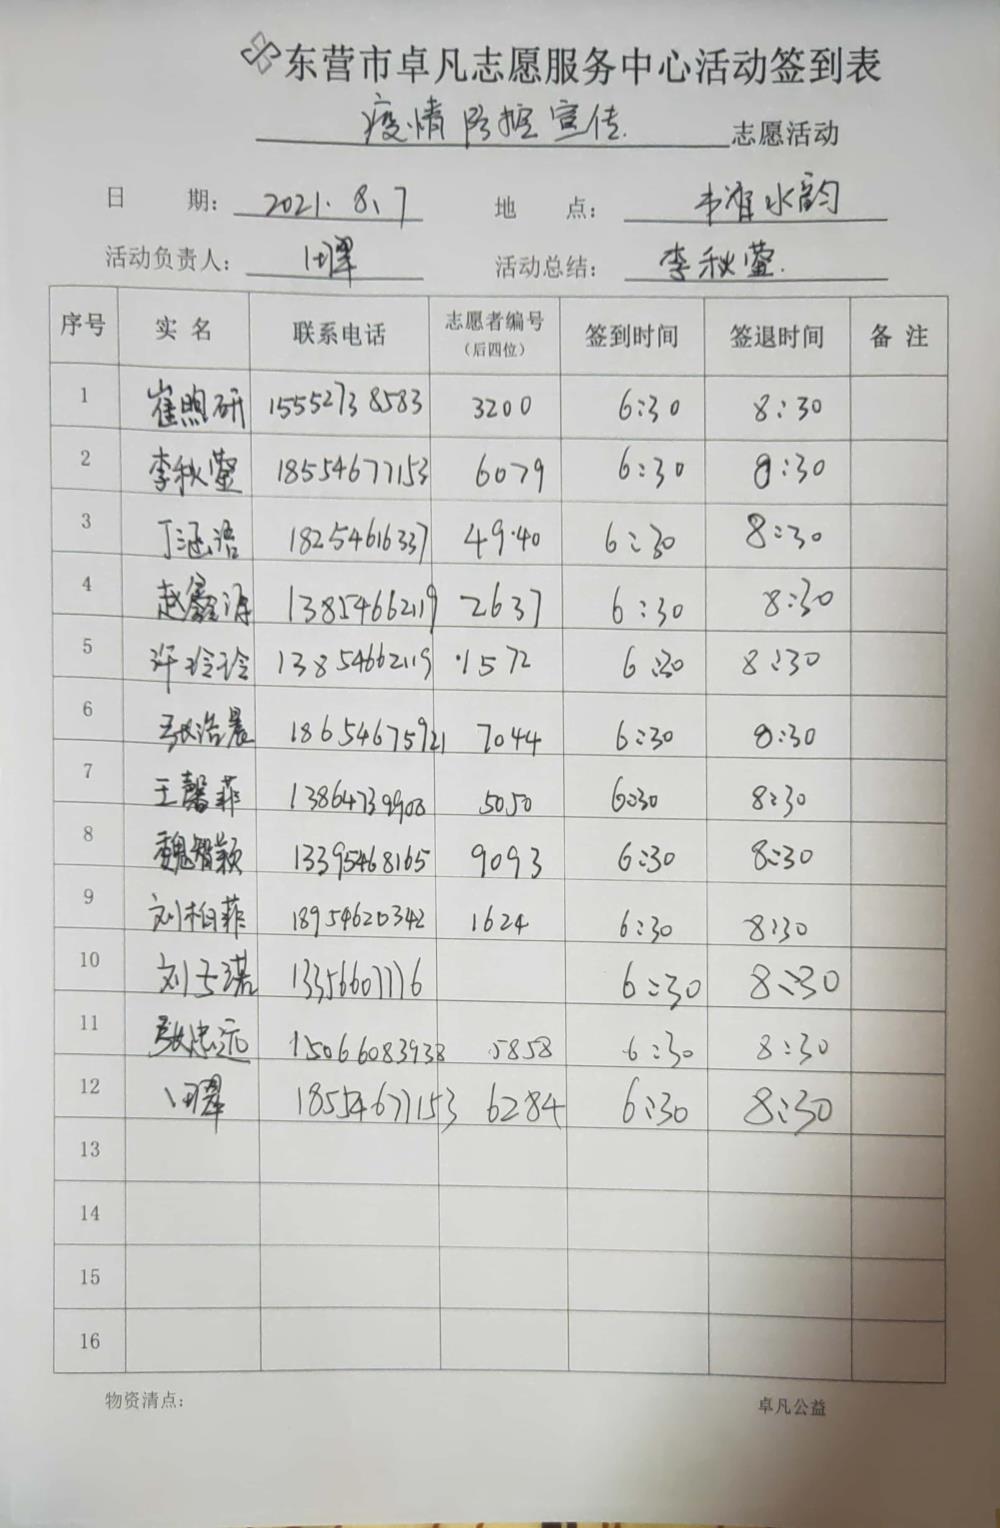 东营市卓凡志愿服务中心活动签到表
疫情防控宣传 志愿活动
日 期: 2021.8.7 地 点: 水韵
活动负责人: 田翠 活动总结: 李秋莹
序号 实名 联系电话 志愿者编号（后四位） 签到时间 签退时间 备注
1 崔煦研 15552738583 3200 6:30 8:30
2 李秋莹 18554677153 6079 6:30 8:30
3 丁涵浩 18254616337 4940 6:30 8:30
4 赵鑫 13854662119 2637 6:30 8:30
5 许玲玲 13854662119 1572 6:30 8:30
6 张浩晨 18654675921 7044 6:30 8:30
7 王馨菲 13864739900 5050 6:30 8:30
8 魏智颖 13395468165 9093 6:30 8:30
9 刘柏菲 18954620342 1624 6:30 8:30
10 刘子諾 13356607776 6:30 8:30
11 张忠远 15066083938 5858 6:30 8:30
12 田翠 18554677153 6284 6:30 8:30
13
14
15
16
物资清点: 卓凡公益